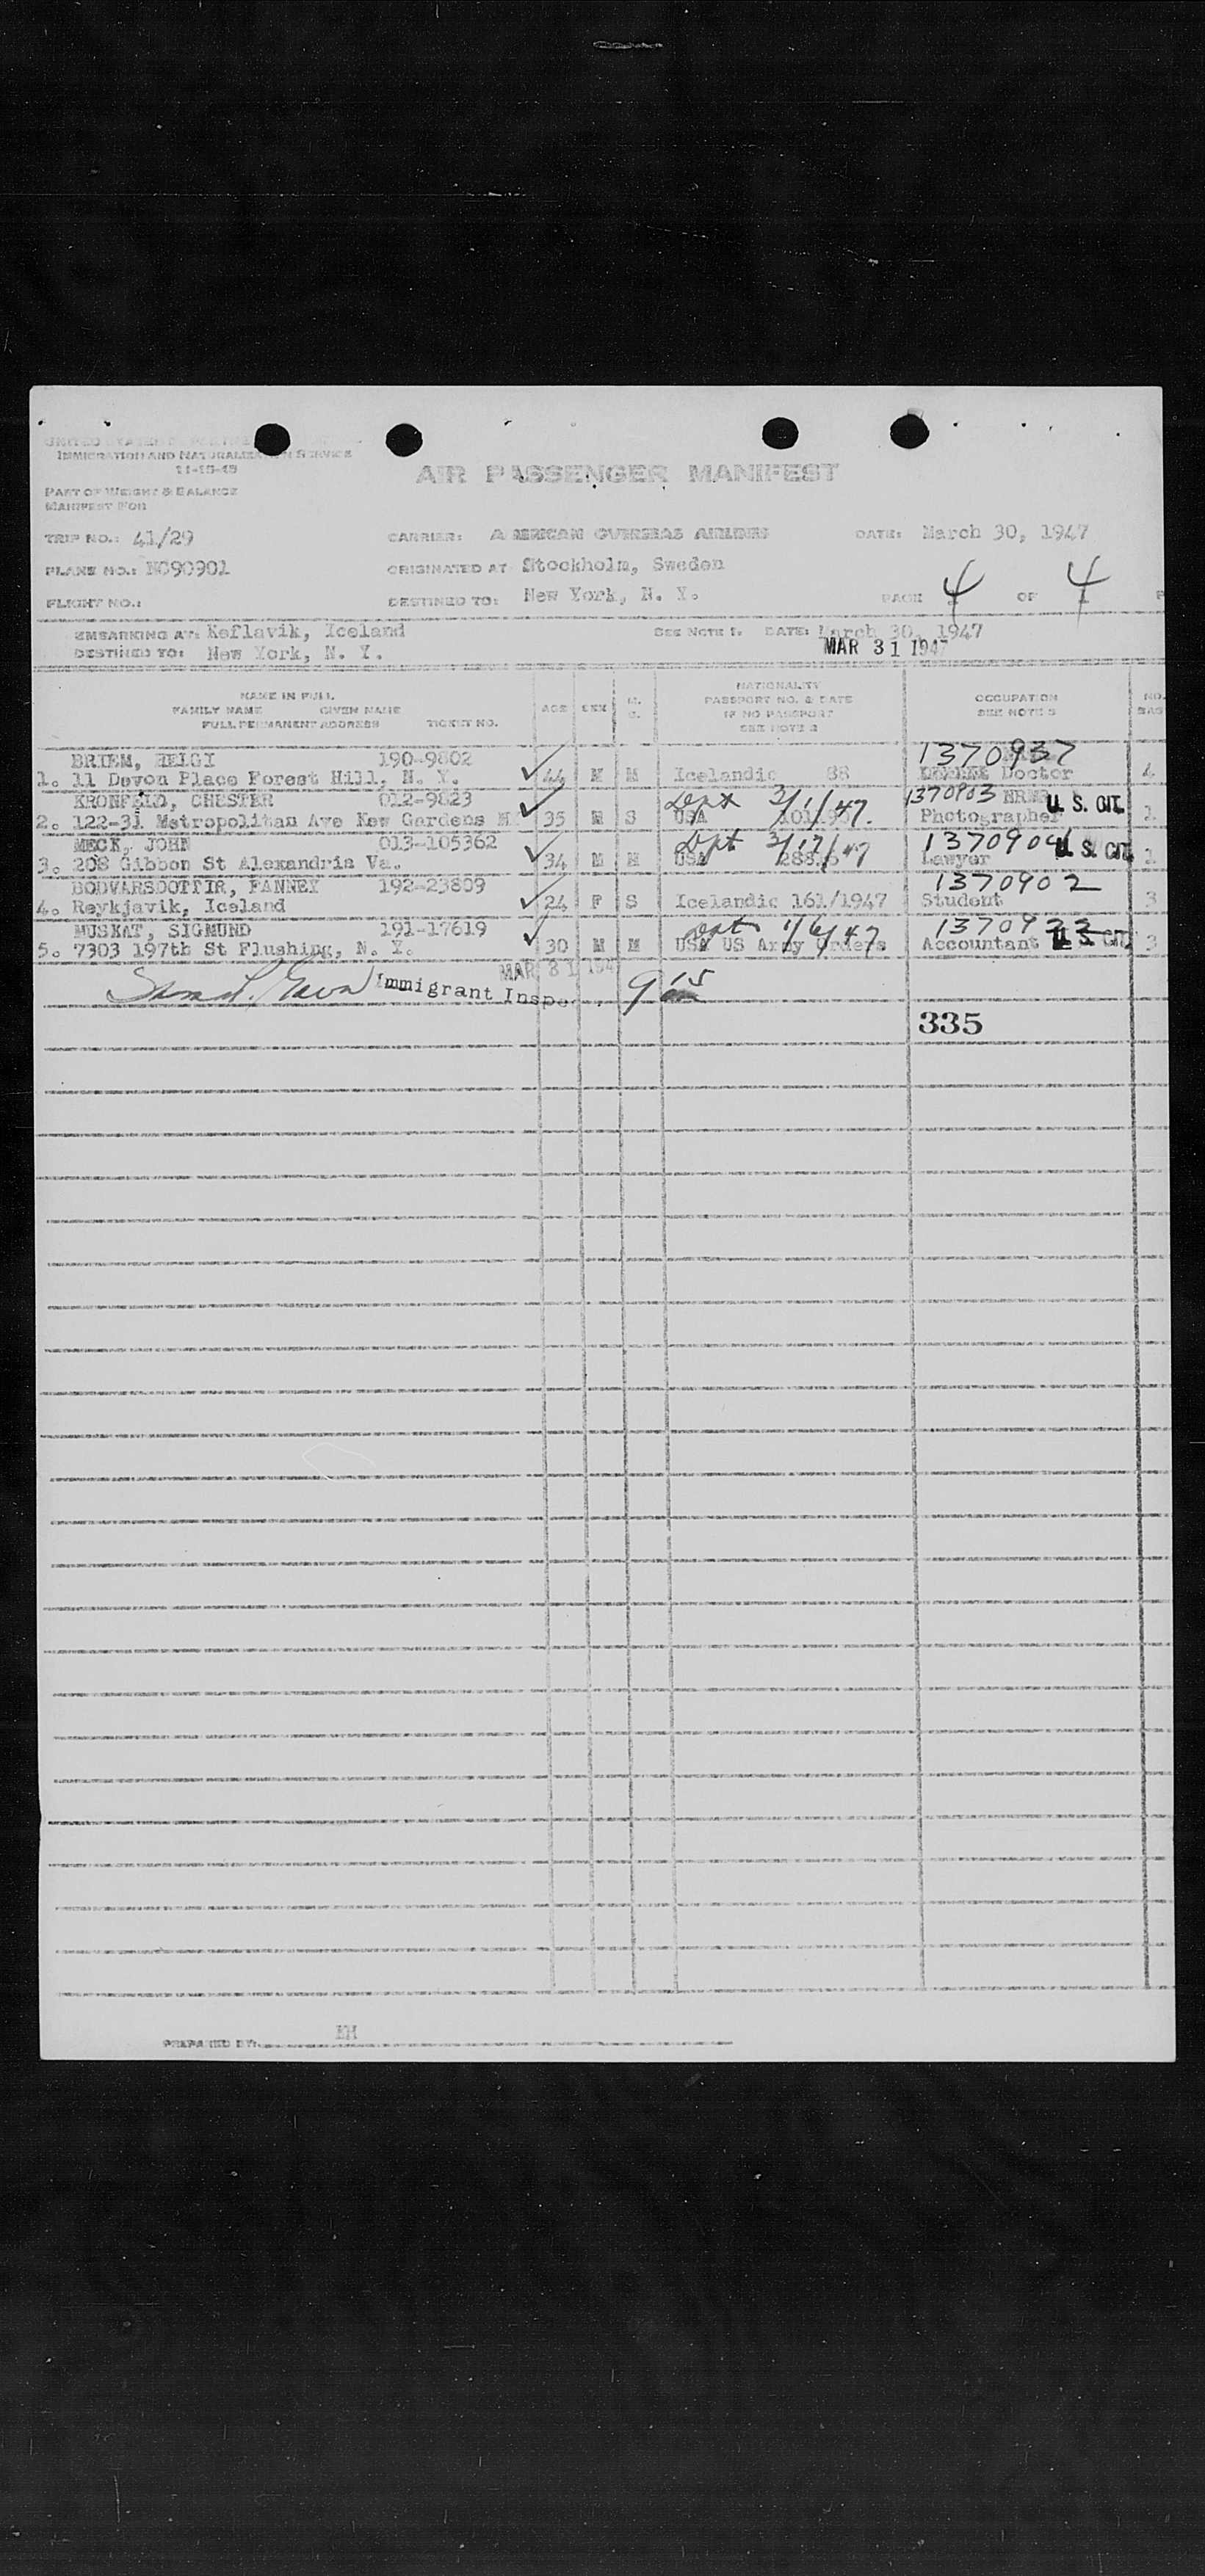 UNITED STATES
IMMIGRATION AND NATURALIZATION SERVICE
11-15-45
AIR PASSENGER MANIFEST
PART OF WEIGHT & BALANCE
MANIFEST FOR
TRIP NO.: 41/29 CARRIER: AMERICAN OVERSEAS AIRLINES DATE: March 30, 1947
PLANE NO.: NC90901 ORIGINATED AT Stockholm, Sweden
FLIGHT NO.: DESTINED TO: New York, N. Y. PAGE 4 OF 4
EMBARKING AT: Keflavik, Iceland SEE NOTE 1. DATE: March 30, 1947
DESTINED TO: New York, N. Y. MAR 31 1947
NAME IN FULL
FAMILY NAME GIVEN NAME
FULL PERMANENT ADDRESS TICKET NO.
AGE SEX M. S.
NATIONALITY
PASSPORT NO. & DATE
IF NO PASSPORT
SEE NOTE 2
OCCUPATION
SEE NOTE 3
NO.
BAG
BRIEM, HELGI 190-9802 1370937
1. 11 Devon Place Forest Hill, N. Y. 44 M M Icelandic 88 Doctor 4
KRONFELD, CHESTER 012-9823 3/1/47. 1370903 U. S. CIT.
2. 122-31 Metropolitan Ave Kew Gardens 35 M S USA Photographer 1
MECK, JOHN 013-105362 Dept 3/17/47 1370904 U. S. CIT.
3. 208 Gibbon St Alexandria Va. 34 M M USA Lawyer 1
BODVARSDOTTIR, FANNEY 192-23809 1370902
4. Reykjavik, Iceland 24 F S Icelandic 161/1947 Student 3
MUSKAT, SIGMUND 191-17619 Dept 1/6/47 1370923
5. 7303 197th St Flushing, N. Y. 30 M M USA US Army Orders Accountant U. S. CIT. 3
MAR 31 194
Immigrant Inspec 9 15
335
PREPARED BY: EH